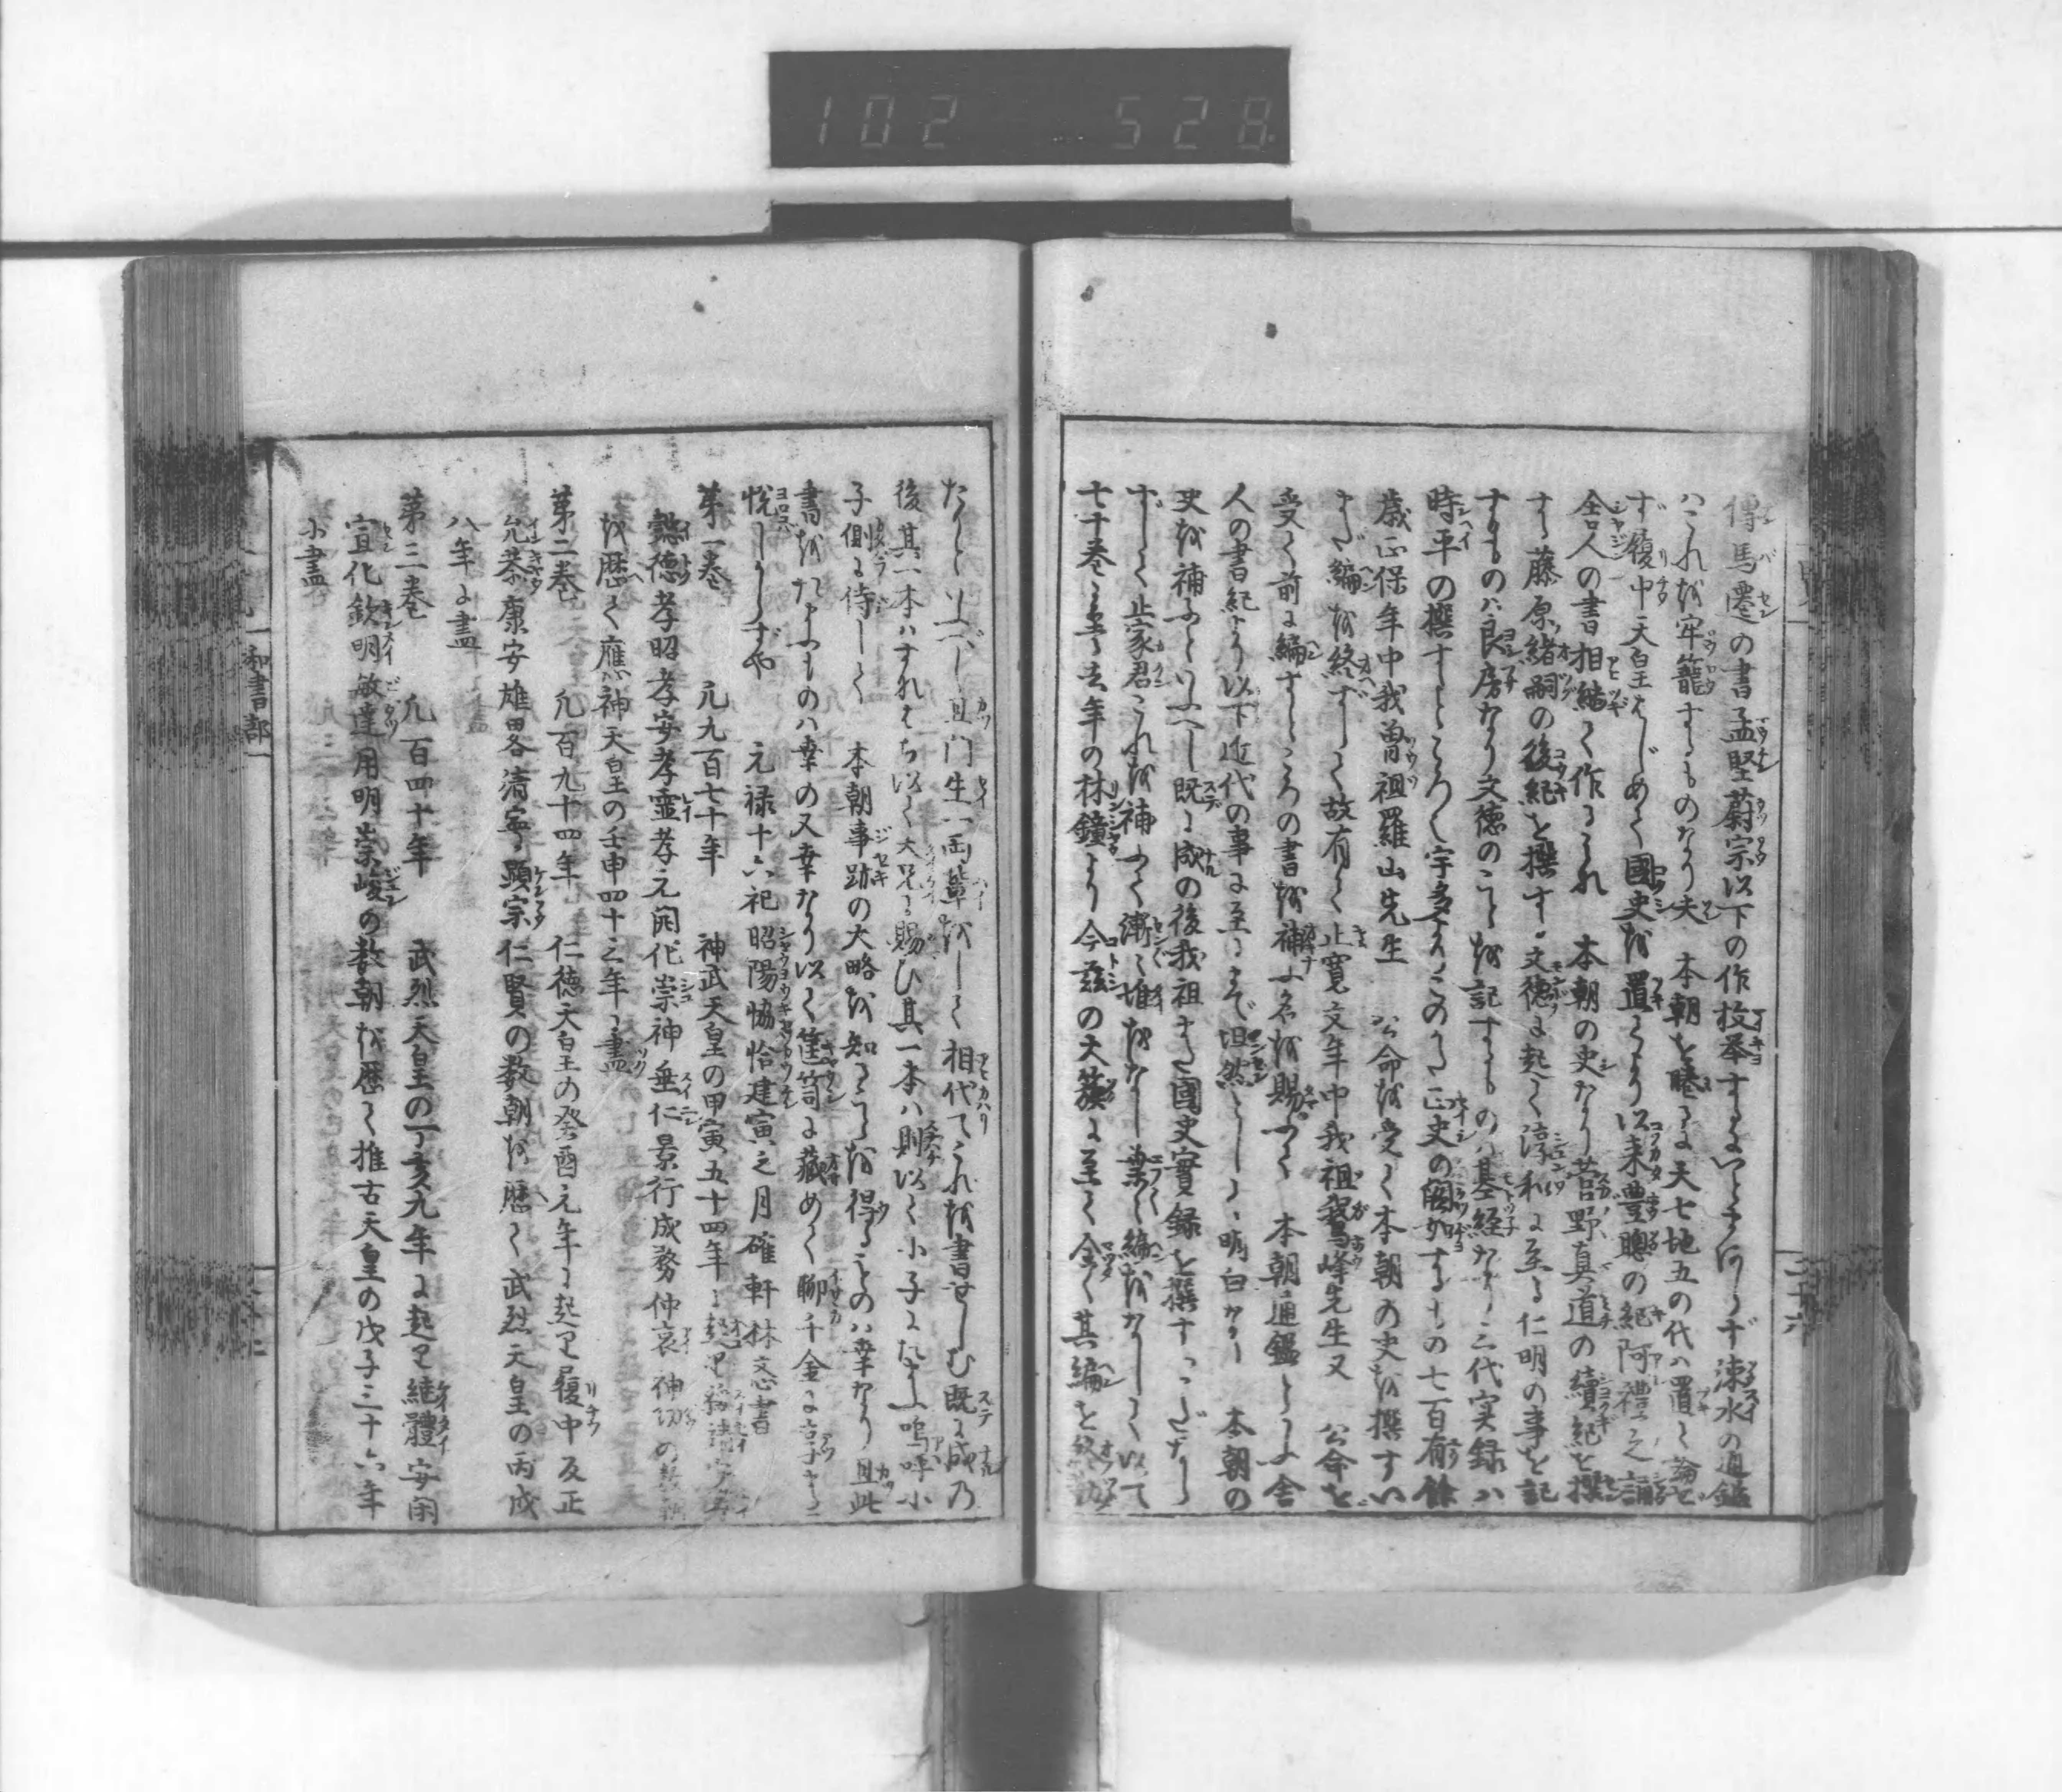 102 528
傳馬遷の書孟堅蔚宗以下の作枚挙するにいとまあらず涑水の通鑑
ハこれを牢籠するものなり夫 本朝を睠るに天七地五の代ハ置く論ぜ
ず履中天皇はじめて國史を置くより以来豊聰の紀阿禮之誦
舎人の書相継て作らる 本朝の史なり菅野真道の續紀を撰
する藤原緒嗣の後紀を撰す文徳に起て淳和に至る仁明の事を記
するものハ良房なり文徳のことを記するものハ基経なり三代実録ハ
時平の撰するところ宇多よりこのかた正史の闕如するもの七百有餘
歳正保年中我曽祖羅山先生 公命を受て本朝の史を撰すい
まだ編を終ずして故有て止寛文年中我祖鵞峰先生又 公命を
受て前に編するところの書を補ふ名を賜ふて 本朝通鑑といふ舎
人の書紀より以下近代の事に至るまで坦然として明白なり 本朝の
史を補ふといふべし既に成の後我祖また國史實録を撰すいまだならず
ずして止家君これを補ふて漸く堆をなし業く編をなして以て
七十巻に至る去年の林鐘より今茲の大簇に至て全く其編を終功
二十六
たりといふべし且門生八両輩をして相代てこれを書せしむ既に成乃
後其一本ハすなはち以て大兄に賜ひ其一本ハ則以て小子にたまふ嗚呼小
子側に侍して 本朝事跡の大略を知ることを得るものハ幸なり且此
書をたまふものハ幸の又幸なり以て筐笥に藏めて聊千金に享す
悦しからずや 元禄十六祀昭陽協洽建寅之月確軒林※書
第一巻 凡九百七十年 神武天皇の甲寅五十四年に起里綏靖安寧
懿徳孝昭孝安孝霊孝元開化崇神垂仁景行成務仲哀神功の数朝
を歴て應神天皇の壬申四十三年に盡
第二巻 凡百九十四年 仁徳天皇の癸酉元年に起里履中反正
允恭康安雄畧清寧顕宗仁賢の数朝を歴て武烈天皇の丙戌
八年に盡
第三巻 凡百四十年 武烈天皇の丁亥九年に起里継體安閑
宣化欽明敏達用明崇峻の数朝を歴て推古天皇の戊子三十六年
に盡
和書部